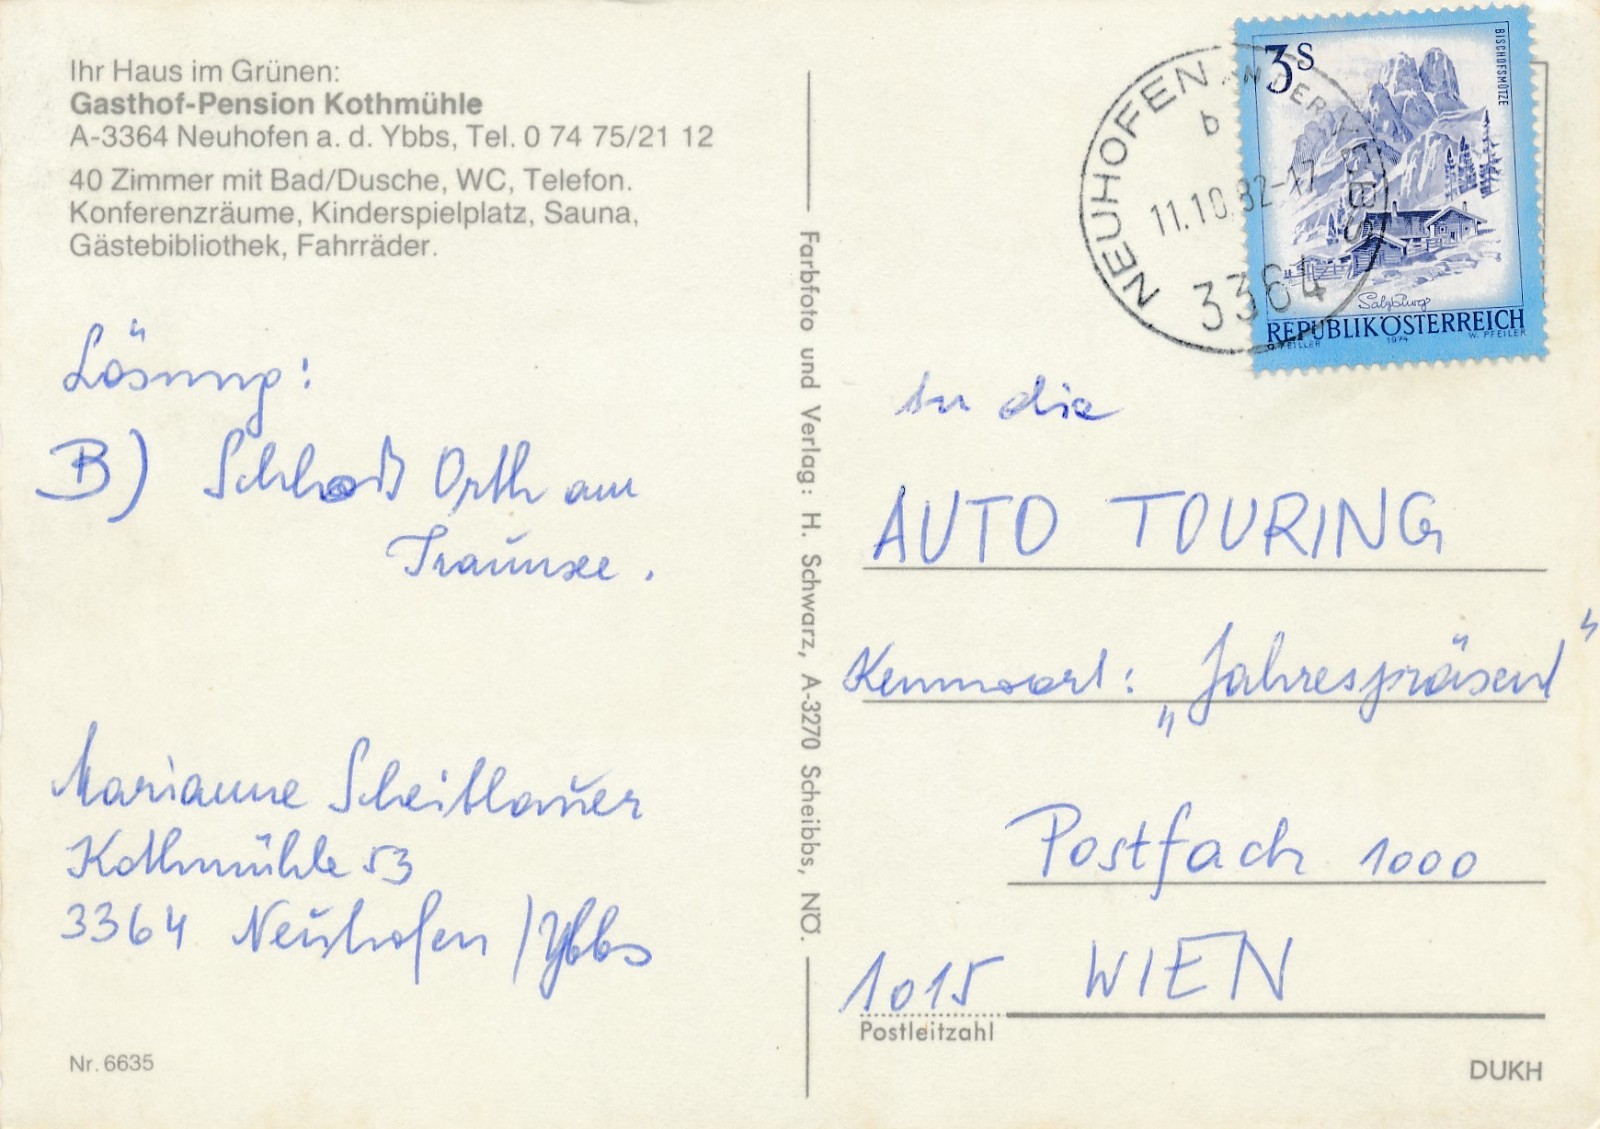 Ihr Haus im Grünen:
Gasthof-Pension Kothmühle
A-3364 Neuhofen a. d. Ybbs, Tel. 0 74 75/21 12
40 Zimmer mit Bad/Dusche, WC, Telefon.
Konferenzräume, Kinderspielplatz, Sauna,
Gästebibliothek, Fahrräder.
Lösung:
B) Schloß Orth am
Traunsee.
Marianne Scheiblauer
Kothmühle 53
3364 Neuhofen / Ybbs
Nr. 6635
Farbfoto und Verlag: H. Schwarz, A-3270 Scheibbs, NÖ.
NEUHOFEN AN DER YBBS
b
11.10.82-17
3364
3S
BISCHOFSMÜTZE
Salzburg
REPUBLIK ÖSTERREICH
1974
W. PFEILER
An die
AUTO TOURING
Kennwort: „Jahrespräsent"
Postfach 1000
1015 WIEN
Postleitzahl
DUKH